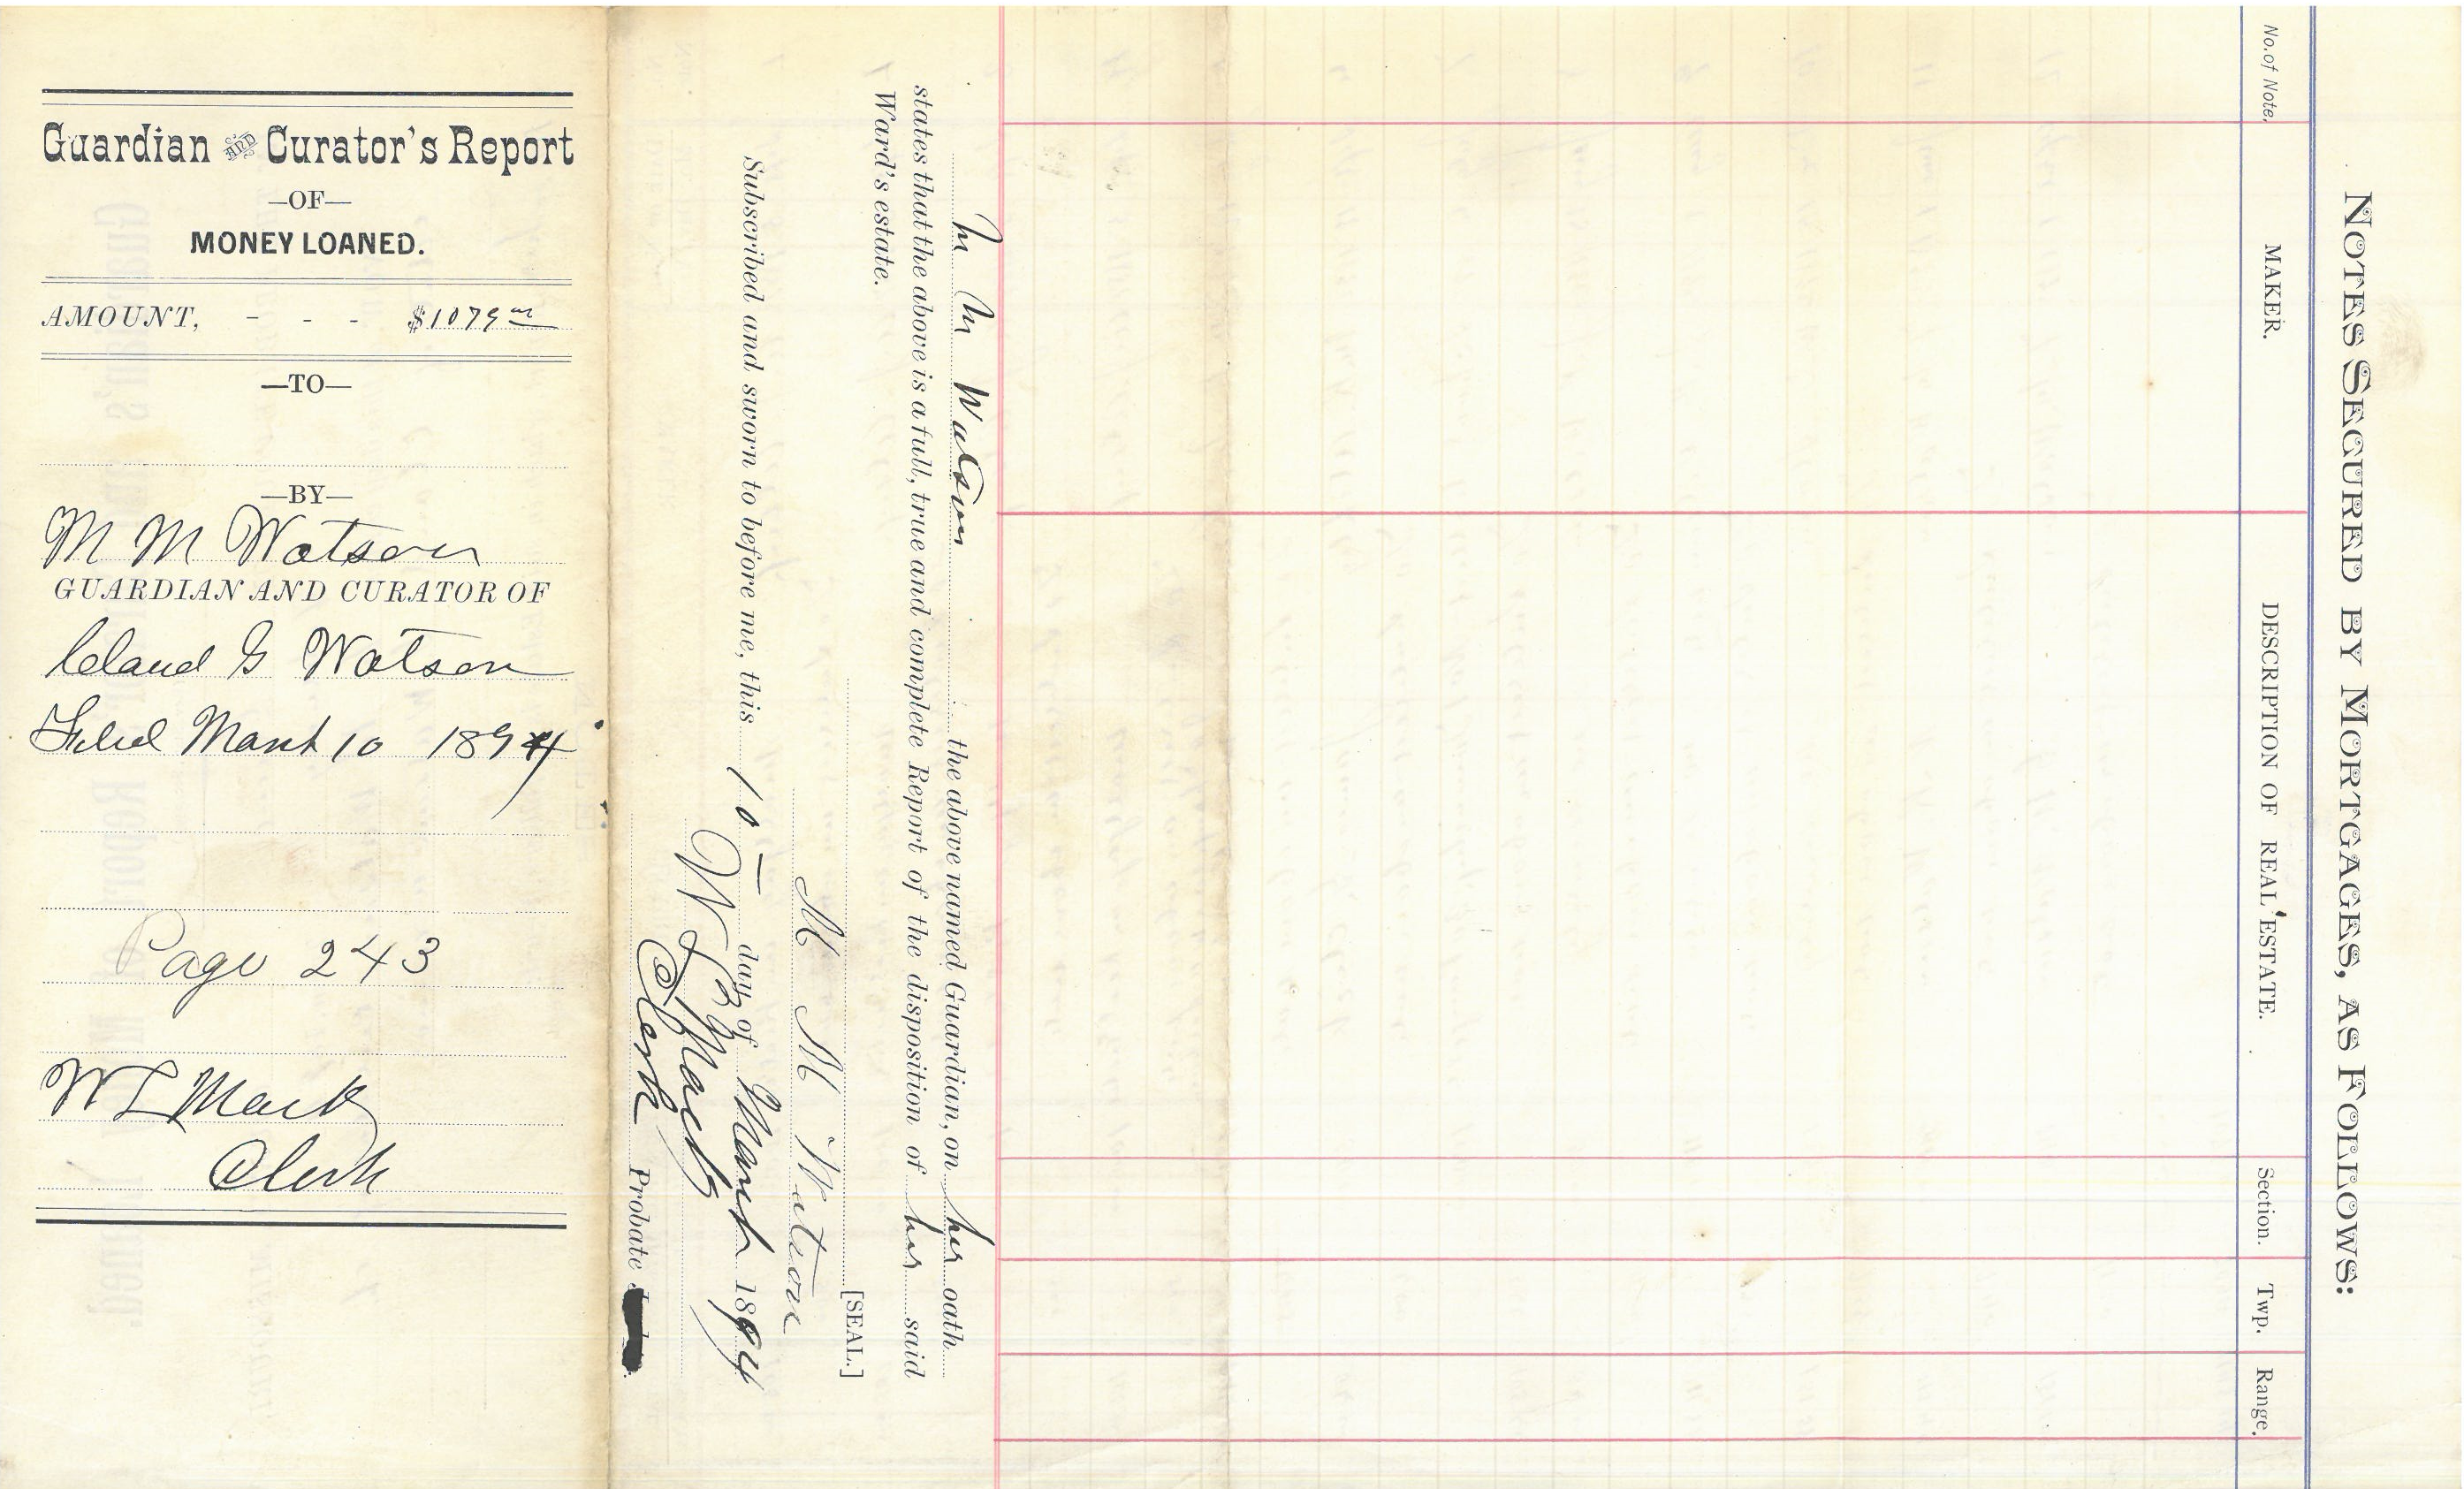 Guardian AND Curator's Report
—OF—
MONEY LOANED.
AMOUNT, - - - $1079 00
—TO—
—BY—
M M Watson
GUARDIAN AND CURATOR OF
Claud G Watson
Filed March 10 1894
Page 243
W L Mack
Clerk
NOTES SECURED BY MORTGAGES, AS FOLLOWS:
No. of Note. MAKER. DESCRIPTION OF REAL ESTATE. Section. Twp. Range.
M M Watson the above named Guardian, on his oath
states that the above is a full, true and complete Report of the disposition of his said
Ward's estate.
[SEAL.]
M M Watson
Subscribed and sworn to before me, this 10 day of March 1894
W L Mack
Clerk Probate